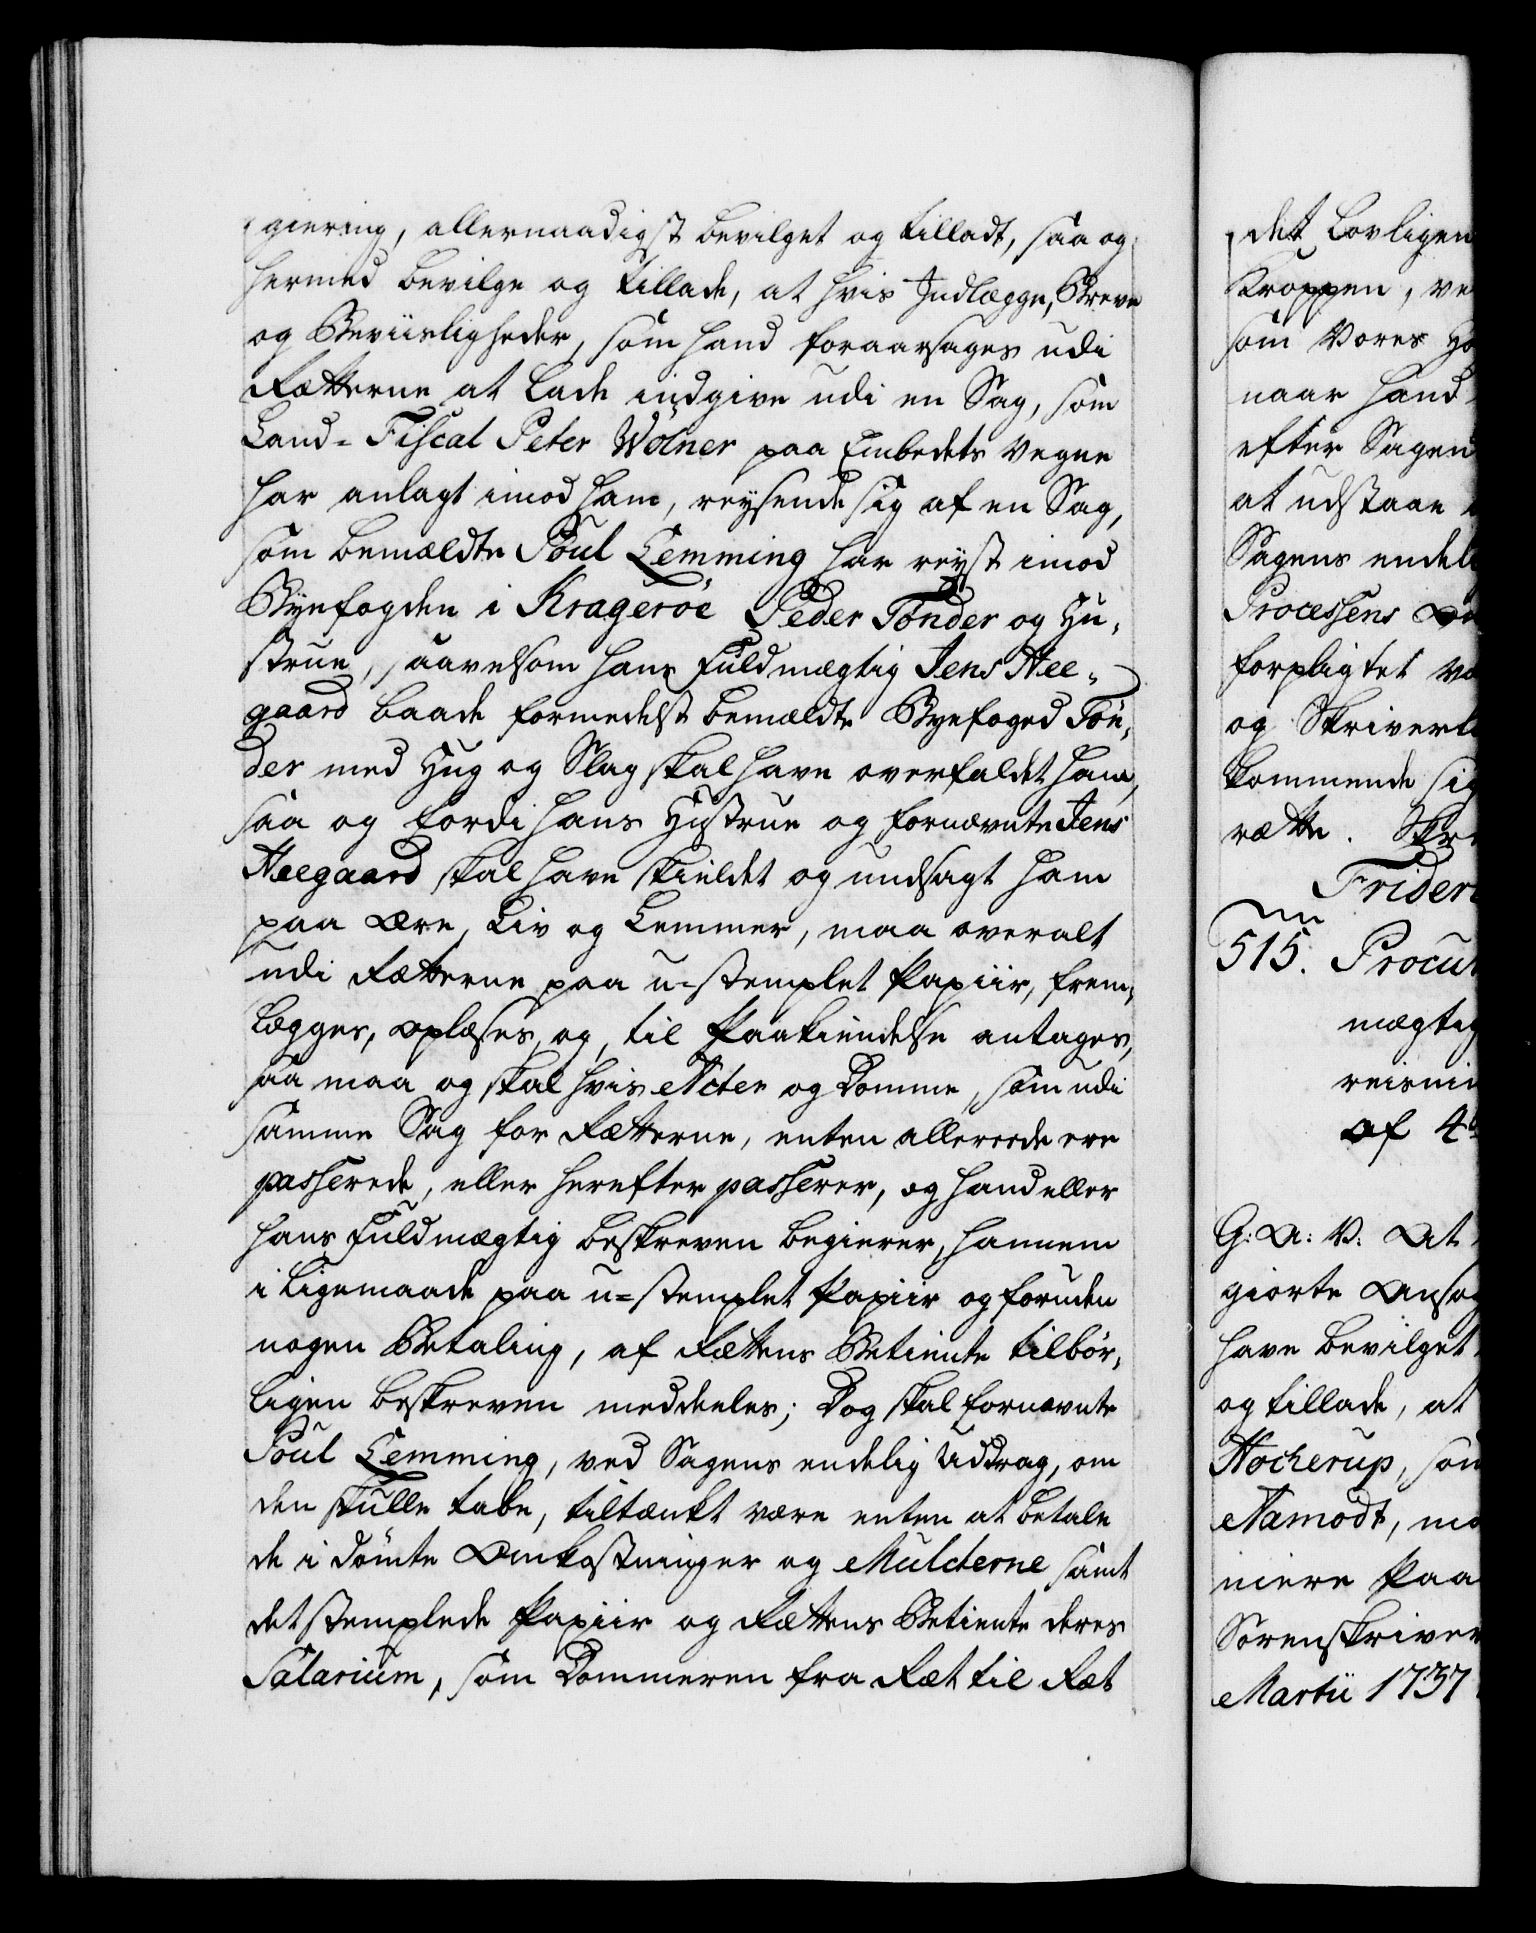 giering, allernaadigst bevilget og tilladt, saa og
hermed bevilge og tillade, at hvis Indlægge, Breve
og Beviisligheder, som hand foraarsages udi
Rætterne at lade indgive udi en Sag, som
Land-Fiscal Peter Wölner paa Embedets Vegne
har anlagt imod ham, reysende sig af en Sag,
som bemældte Poul Lemming har reyst imod
Byefogden i Kragerøe Peder Tønder og Hu-
strue, saavelsom hans Fuldmægtig Jens Hee-
gaard baade formedelst bemældte Byefoged Tøn-
der med Hug og Slag skal have overfaldet ham,
saa og fordi hans Hustrue og fornævnte Jens
Heegaard skal have skieldet og undsagt ham
paa Ære, Liv og Lemmer, maa overalt
udi Rætterne paa u-stemplet Papiir, frem-
lægges, oplæses, og, til Paakiendelse antages,
saa maa og skal hvis Acter og Domme, som udi
samme Sag for Rætterne, enten allereede ere
passerede, eller herefter passerer, og hand eller
hans Fuldmægtig beskreven begierer, hannem
i ligemaade paa u-stemplet Papiir og foruden
nogen Betaling, af Rættens Betiente tilbør-
ligen beskreven meddeeles; Dog skal fornævnte
Poul Lemming, ved Sagens endelig Uddrag, om
den skulle tabe, tiltænkt være enten at betale
de i dømte Omkostninger og Mulcterne samt
det stemplede Papiir og Rættens Betiente deres
Salarium, som Dommeren fra Ræt til Ræt
det lovligen
Kroppen, ve
som Vores Ho
naar hand
efter Sagen
at udstaae
Sagens endel
Processens
forpligtet
og Skriver
kommende sig
rætte. Skr
Frider
515. Procur
mægtig
reisni
af 4
G: A: V: At
giorte Ansøg
have bevilget
og tillade, at
Hocherup, som
Namodt, ma
niere Paa
Sorenskriver
Martii 1737